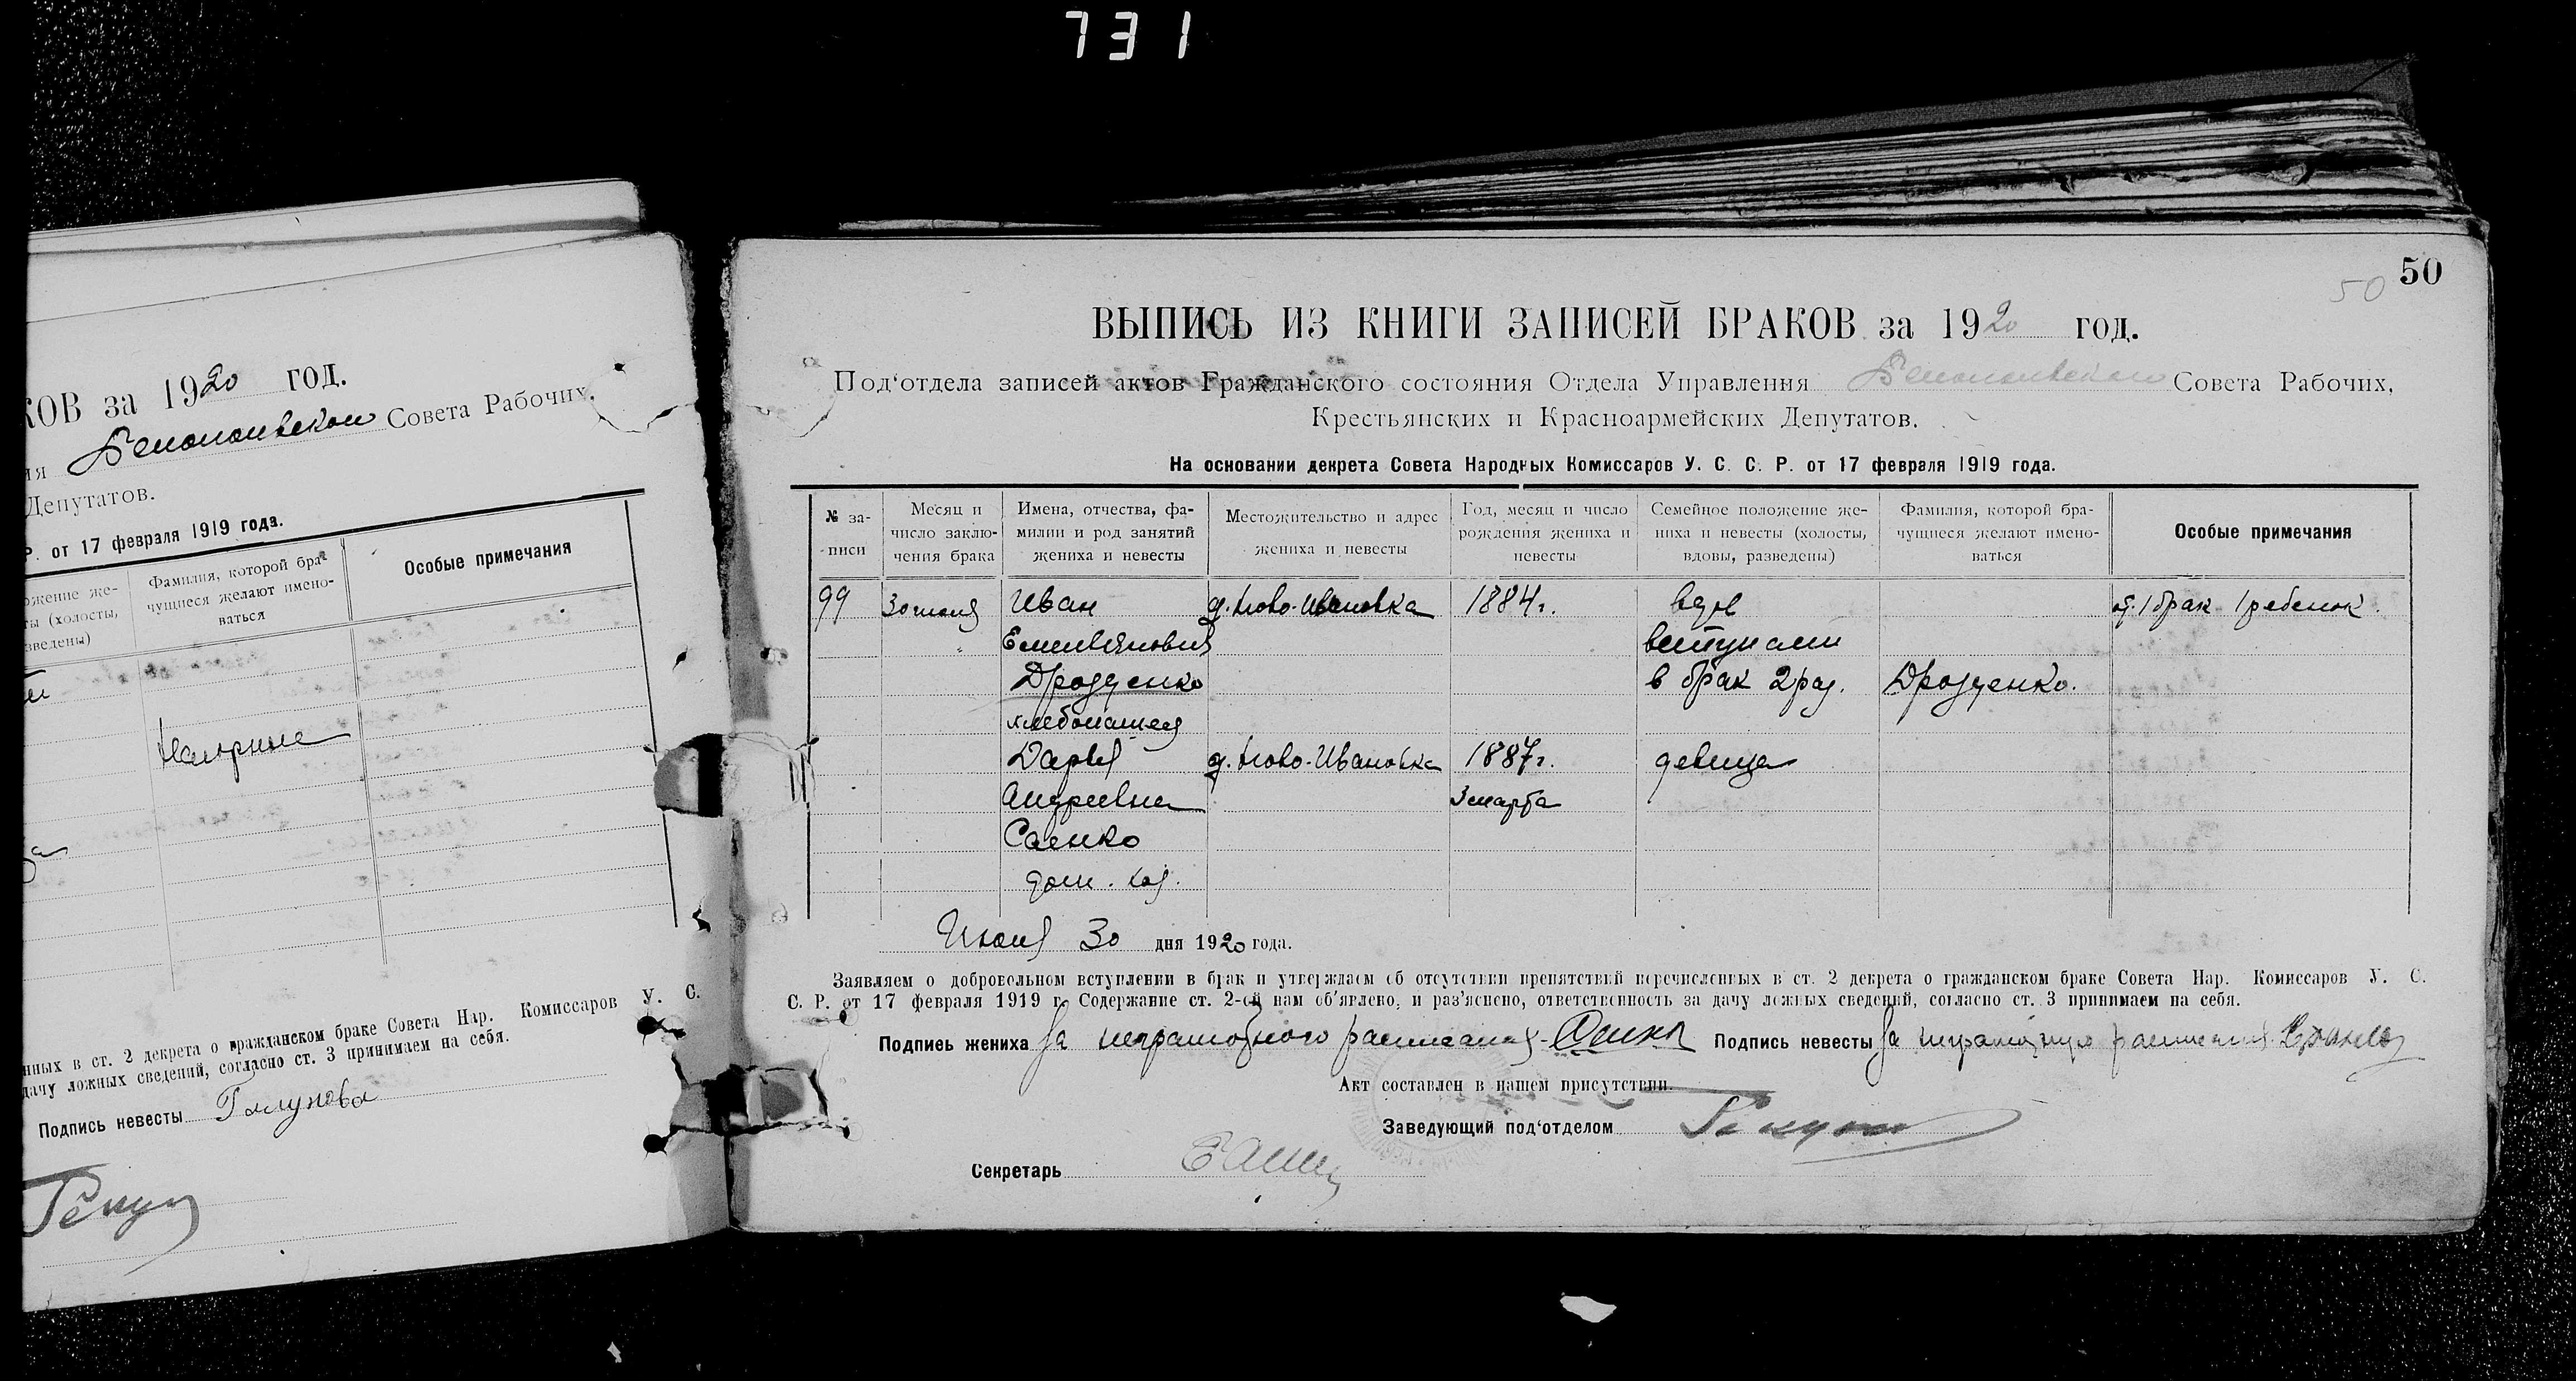 731
КОВ за 1920 год.
ия Белополовской Совета Рабочих,
Депутатов.
Р. от 17 февраля 1919 года.
ожение же-
ты (холосты,
зведены)
Фамилия, которой бра-
чущиеся желают имено-
ваться
Особые примечания
нных в ст. 2 декрета о гражданском браке Совета Нар. Комиссаров У. С.
дачу ложных сведений, согласно ст. 3 принимаем на себя.
Подпись невесты
50
50
ВЫПИСЬ ИЗ КНИГИ ЗАПИСЕЙ БРАКОВ за 1920 год.
Под'отдела записей актов Гражданского состояния Отдела Управления Совета Рабочих,
Крестьянских и Красноармейских Депутатов.
На основании декрета Совета Народных Комиссаров У. С. С. Р. от 17 февраля 1919 года.
№ за-
писи
Месяц и
число заклю-
чения брака
Имена, отчества, фа-
милии и род занятий
жениха и невесты
Местожительство и адрес
жениха и невесты
Год, месяц и число
рождения жениха и
невесты
Семейное положение же-
ниха и невесты (холосты,
вдовы, разведены)
Фамилия, которой бра-
чущиеся желают имено-
ваться
Особые примечания
99 30 июля Иван д. Ново-Ивановка 1884 г. вдов от 1 брак 1 ребенок.
Емельянович вступали
Дрозденко в брак 2 раз. Дрозденко.
хлебопашец
Дарья д. Ново-Ивановка 1887 г. девица
Андреевна 3 марта
Саенко
дом. хоз.
Июля 30 дня 1920 года.
Заявляем о добровольном вступлении в брак и утверждаем об отсутствии препятствий перечисленных в ст. 2 декрета о гражданском браке Совета Нар. Комиссаров У. С.
С. Р. от 17 февраля 1919 г. Содержание ст. 2-ой нам об'явлено, и раз'яснено, ответственность за дачу ложных сведений, согласно ст. 3 принимаем на себя.
Подпись жениха за неграмотного расписался Подпись невесты за неграмотную расписался
Акт составлен в нашем присутствии.
Заведующий под'отделом
Секретарь